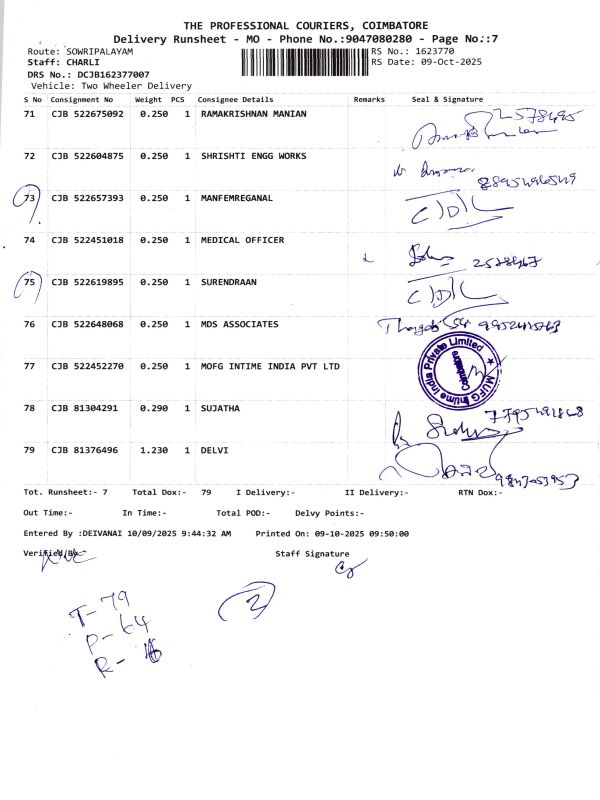 THE PROFESSIONAL COURIERS, COIMBATORE
Delivery Runsheet - MO - Phone No.:9047080280 - Page No.:7
Route: SOWRIPALAYAM RS No.: 1623770
Staff: CHARLI RS Date: 09-Oct-2025
DRS No.: DCJB162377007
Vehicle: Two Wheeler Delivery
S No Consignment No Weight PCS Consignee Details Remarks Seal & Signature
71 CJB 522675092 0.250 1 RAMAKRISHNAN MANIAN
72 CJB 522604875 0.250 1 SHRISHTI ENGG WORKS
73 CJB 522657393 0.250 1 MANFEMREGANAL
74 CJB 522451018 0.250 1 MEDICAL OFFICER
75 CJB 522619895 0.250 1 SURENDRAAN
76 CJB 522648068 0.250 1 MDS ASSOCIATES
77 CJB 522452270 0.250 1 MOFG INTIME INDIA PVT LTD
MUFG Intime India Private Limited
Coimbatore
78 CJB 81304291 0.290 1 SUJATHA
79 CJB 81376496 1.230 1 DELVI
Tot. Runsheet:- 7 Total Dox:- 79 I Delivery:- II Delivery:- RTN Dox:-
Out Time:- In Time:- Total POD:- Delvy Points:-
Entered By :DEIVANAI 10/09/2025 9:44:32 AM Printed On: 09-10-2025 09:50:00
Verified/By Staff Signature
T-79
P-64
R-
2